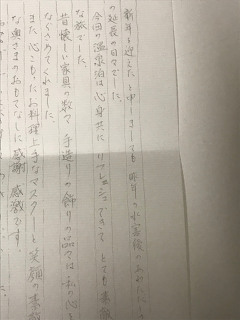 新年を迎えたと申しましても昨年の水害後のあわただしさ
の延長の日々でした。
今回の温泉泊は心身共にリフレッシュできて とても素敵
な旅でした。
昔懐しい家具の数々 手造りの飾りの品々は私の心を
なぐさめてくれました。
また心こもったお料理上手なマスターと笑顔の素敵
な奥さまのおもてなしに感謝 感激です。